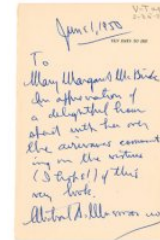 June 1, 1950
To
Mary Margaret McBride
In appreciation of
a delightful hour
spent with her over
the airwaves comment-
ing on the virtues
(I hope!) of this
very book.
Milton